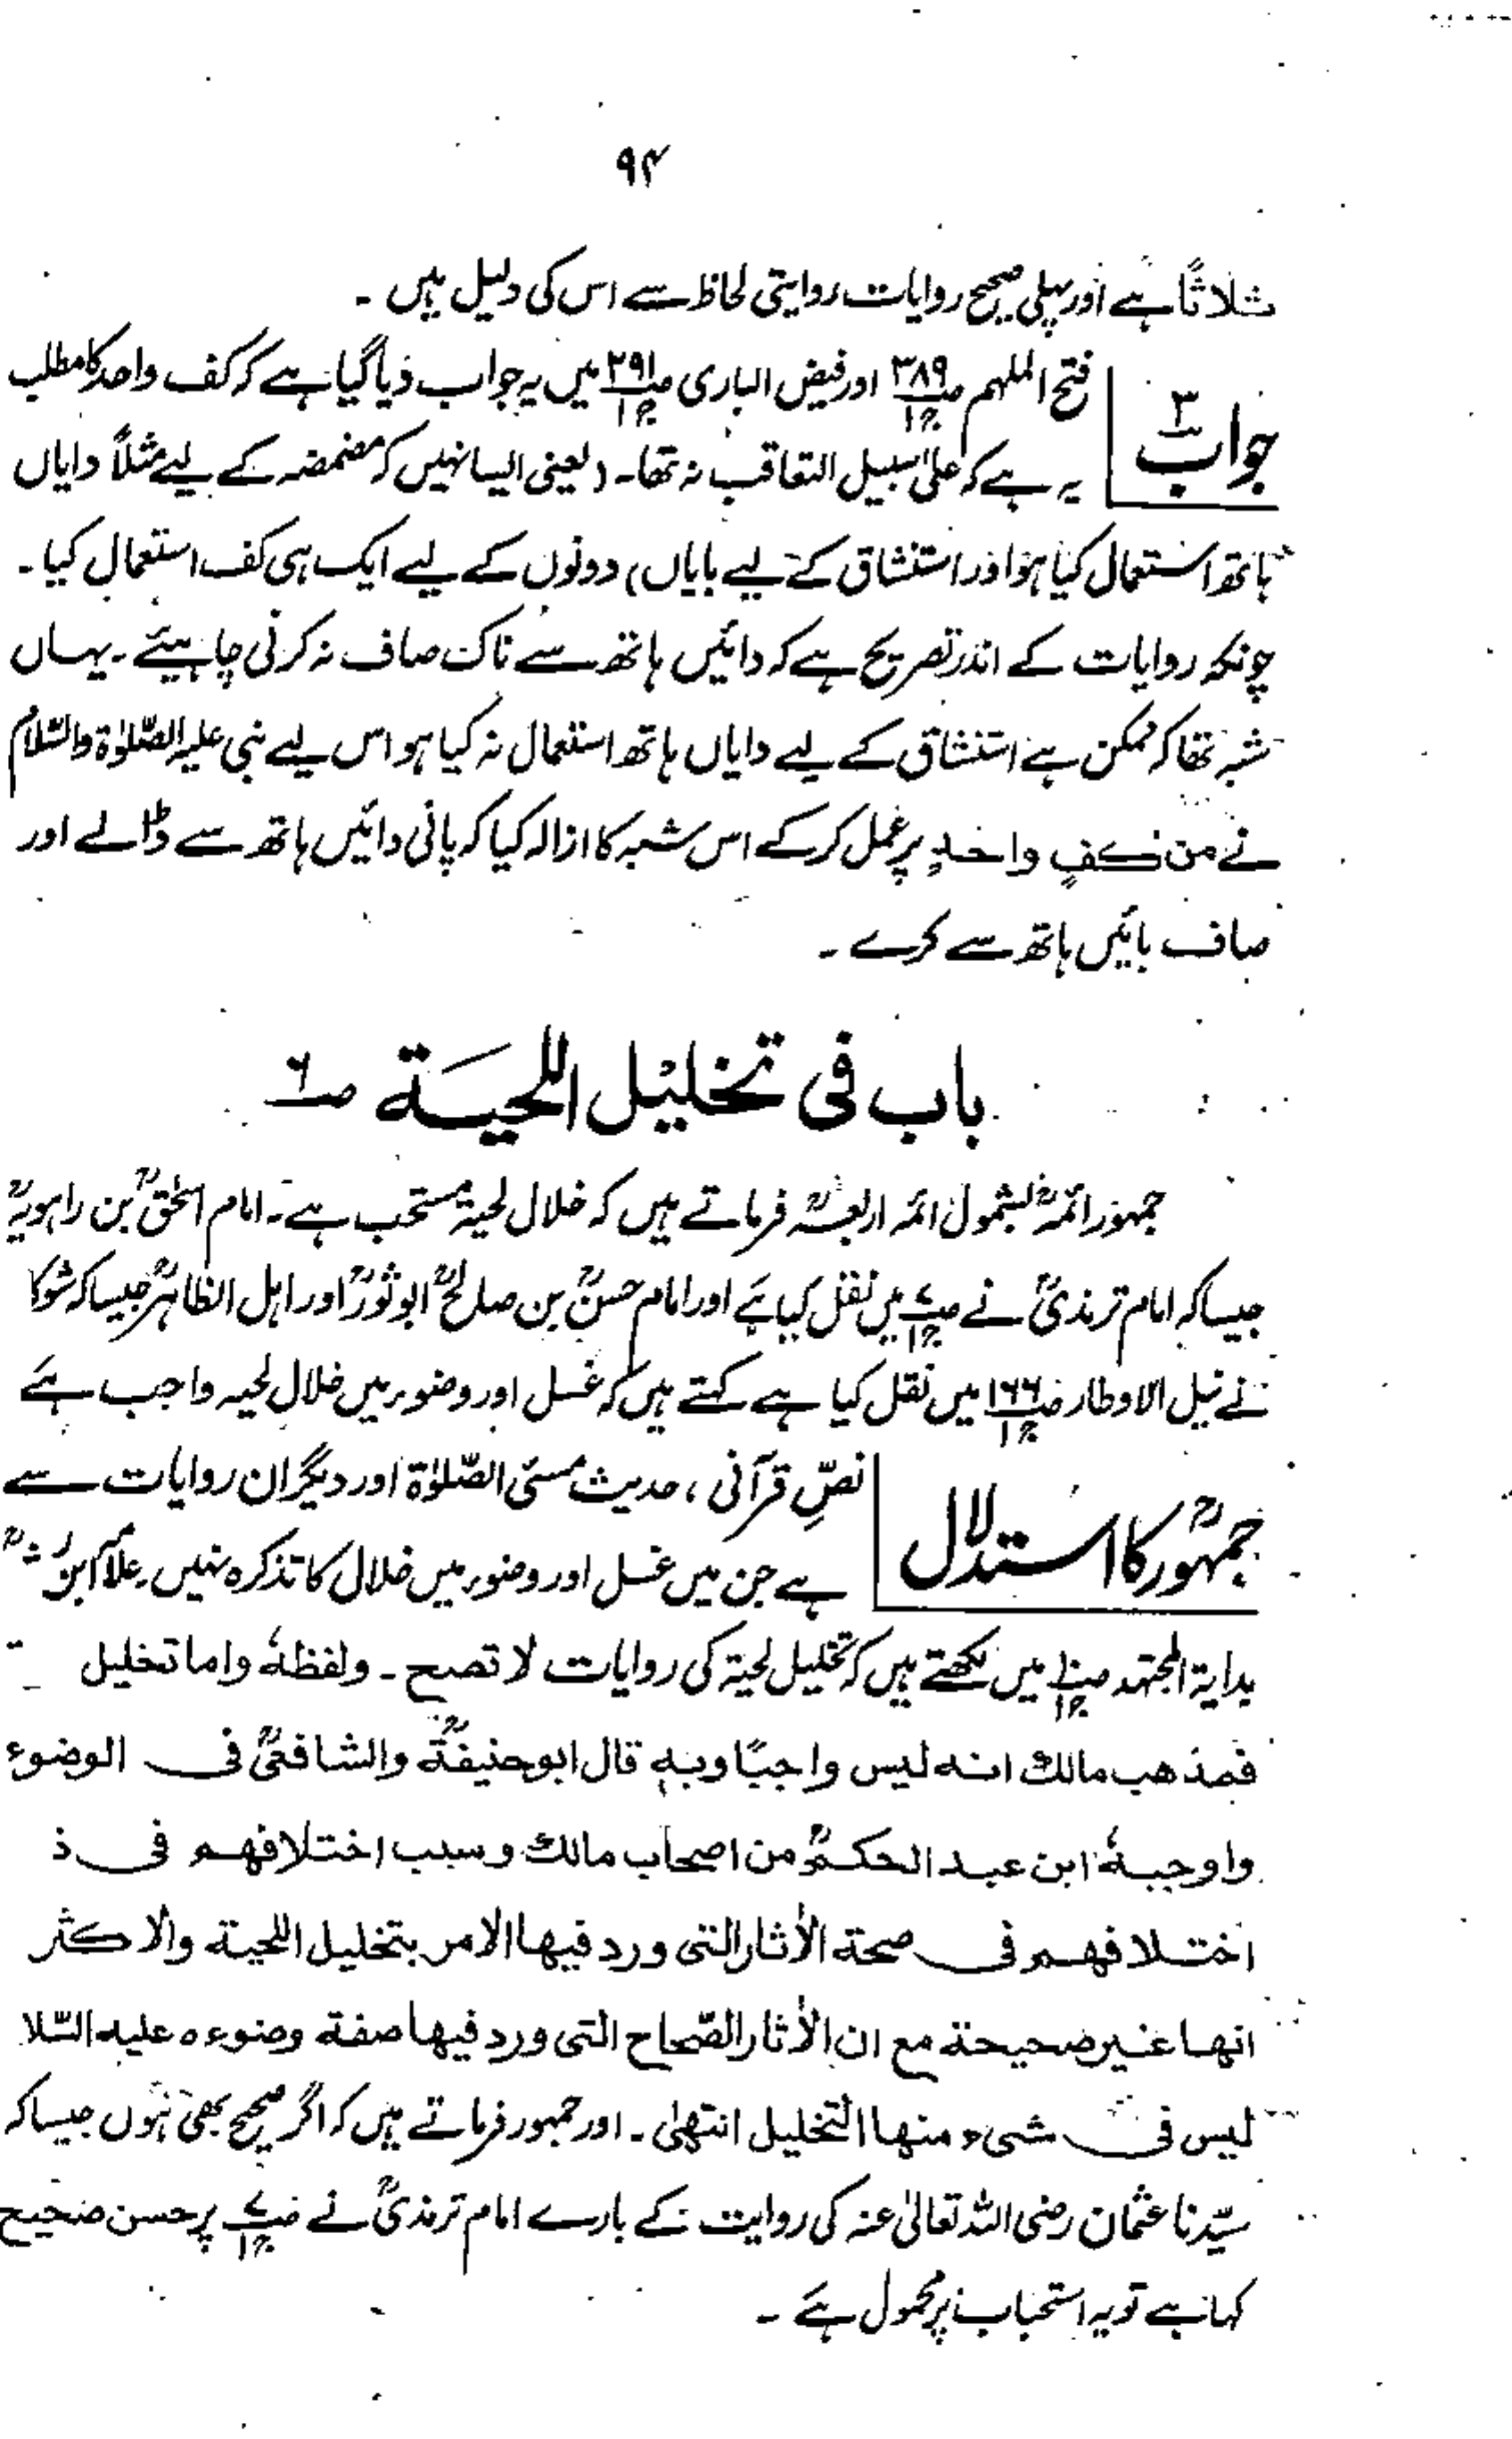 ۹۴
ثلاثاً ہے اور پہلی صحیح روایات روایتی لحاظ سے اس کی دلیل ہیں ۔
جواب ۳
فتح الملہم ص۳۸۹ ج۱ اور فیض الباری ص۲۹۱ ج۱ میں یہ جواب دیا گیا ہے کہ کف واحد کا مطلب
یہ ہے کہ علیٰ سبیل التعاقب نہ تھا۔ (یعنی ایسا نہیں کہ مضمضہ کے لیے مثلاً دایاں
ہاتھ استعمال کیا ہو اور استنشاق کے لیے بایاں) دونوں کے لیے ایک ہی کف استعمال کیا ۔
چونکہ روایات کے اندر تصریح ہے کہ دائیں ہاتھ سے ناک صاف نہ کرنی چاہیئے ۔ یہاں
شبہ تھا کہ ممکن ہے استنشاق کے لیے دایاں ہاتھ استعمال نہ کیا ہو اس لیے نبی علیہ الصّلوٰۃ والسّلام
نے من کفٍ واحدٍ پر عمل کر کے اس شبہ کا ازالہ کیا کہ پانی دائیں ہاتھ سے ڈالے اور
صاف بائیں ہاتھ سے کرے ۔
باب فی تخلیل اللحیۃ ص۶
جمہور ائمہؒ بشمول ائمہ اربعہؒ فرماتے ہیں کہ خلال لحیۃ مستحب ہے ۔ امام اسحٰقؒ بن راہویہؒ
جیسا کہ امام ترمذیؒ نے ص۷ ج۱ میں نقل کیا ہے اور امام حسنؒ بن صالحؒ ابو ثورؒ اور اہل الظاہرؒ جیسا کہ شوکا
نے نیل الاوطار ص۱۶۶ ج۱ میں نقل کیا ہے کہتے ہیں کہ غسل اور وضوء میں خلال لحیہ واجب ہے
جمہورؒ کا استدلال
نصِّ قرآنی ، حدیث مسئ الصّلوٰۃ اور دیگر ان روایات سے
ہے جن میں غسل اور وضوء میں خلال کا تذکرہ نہیں ۔ علامہ ابن
بدایۃ المجتہد ص۱۰ ج۱ میں لکھتے ہیں کہ تخلیل لحیۃ کی روایات لا تصح ۔ ولفظہٗ واما تخلیل
فمذهب مالك انه ليس واجبًا وبهٖ قال ابوحنيفةؒ والشافعيؒ فى الوضوء
واوجبهٗ ابن عبد الحكمؒ من اصحاب مالك وسبب اختلافهم فى ذ
اختلافهم فى صحة الأثار التى ورد فيها الامر بتخليل اللحية والاكثر
انها غير صحيحة مع ان الأثار الصّحاح التى ورد فيها صفة وضوءه عليه السّلا
ليس فى شىء منها التخليل انتهیٰ ۔ اور جمہور فرماتے ہیں کہ اگر صحیح بھی ہوں جیسا کہ
سیّدنا عثمان رضی اللہ تعالیٰ عنہ کی روایت کے بارے امام ترمذیؒ نے ص۷ ج۱ پر حسن صحیح
کہا ہے تو یہ استحباب پر محمول ہے ۔